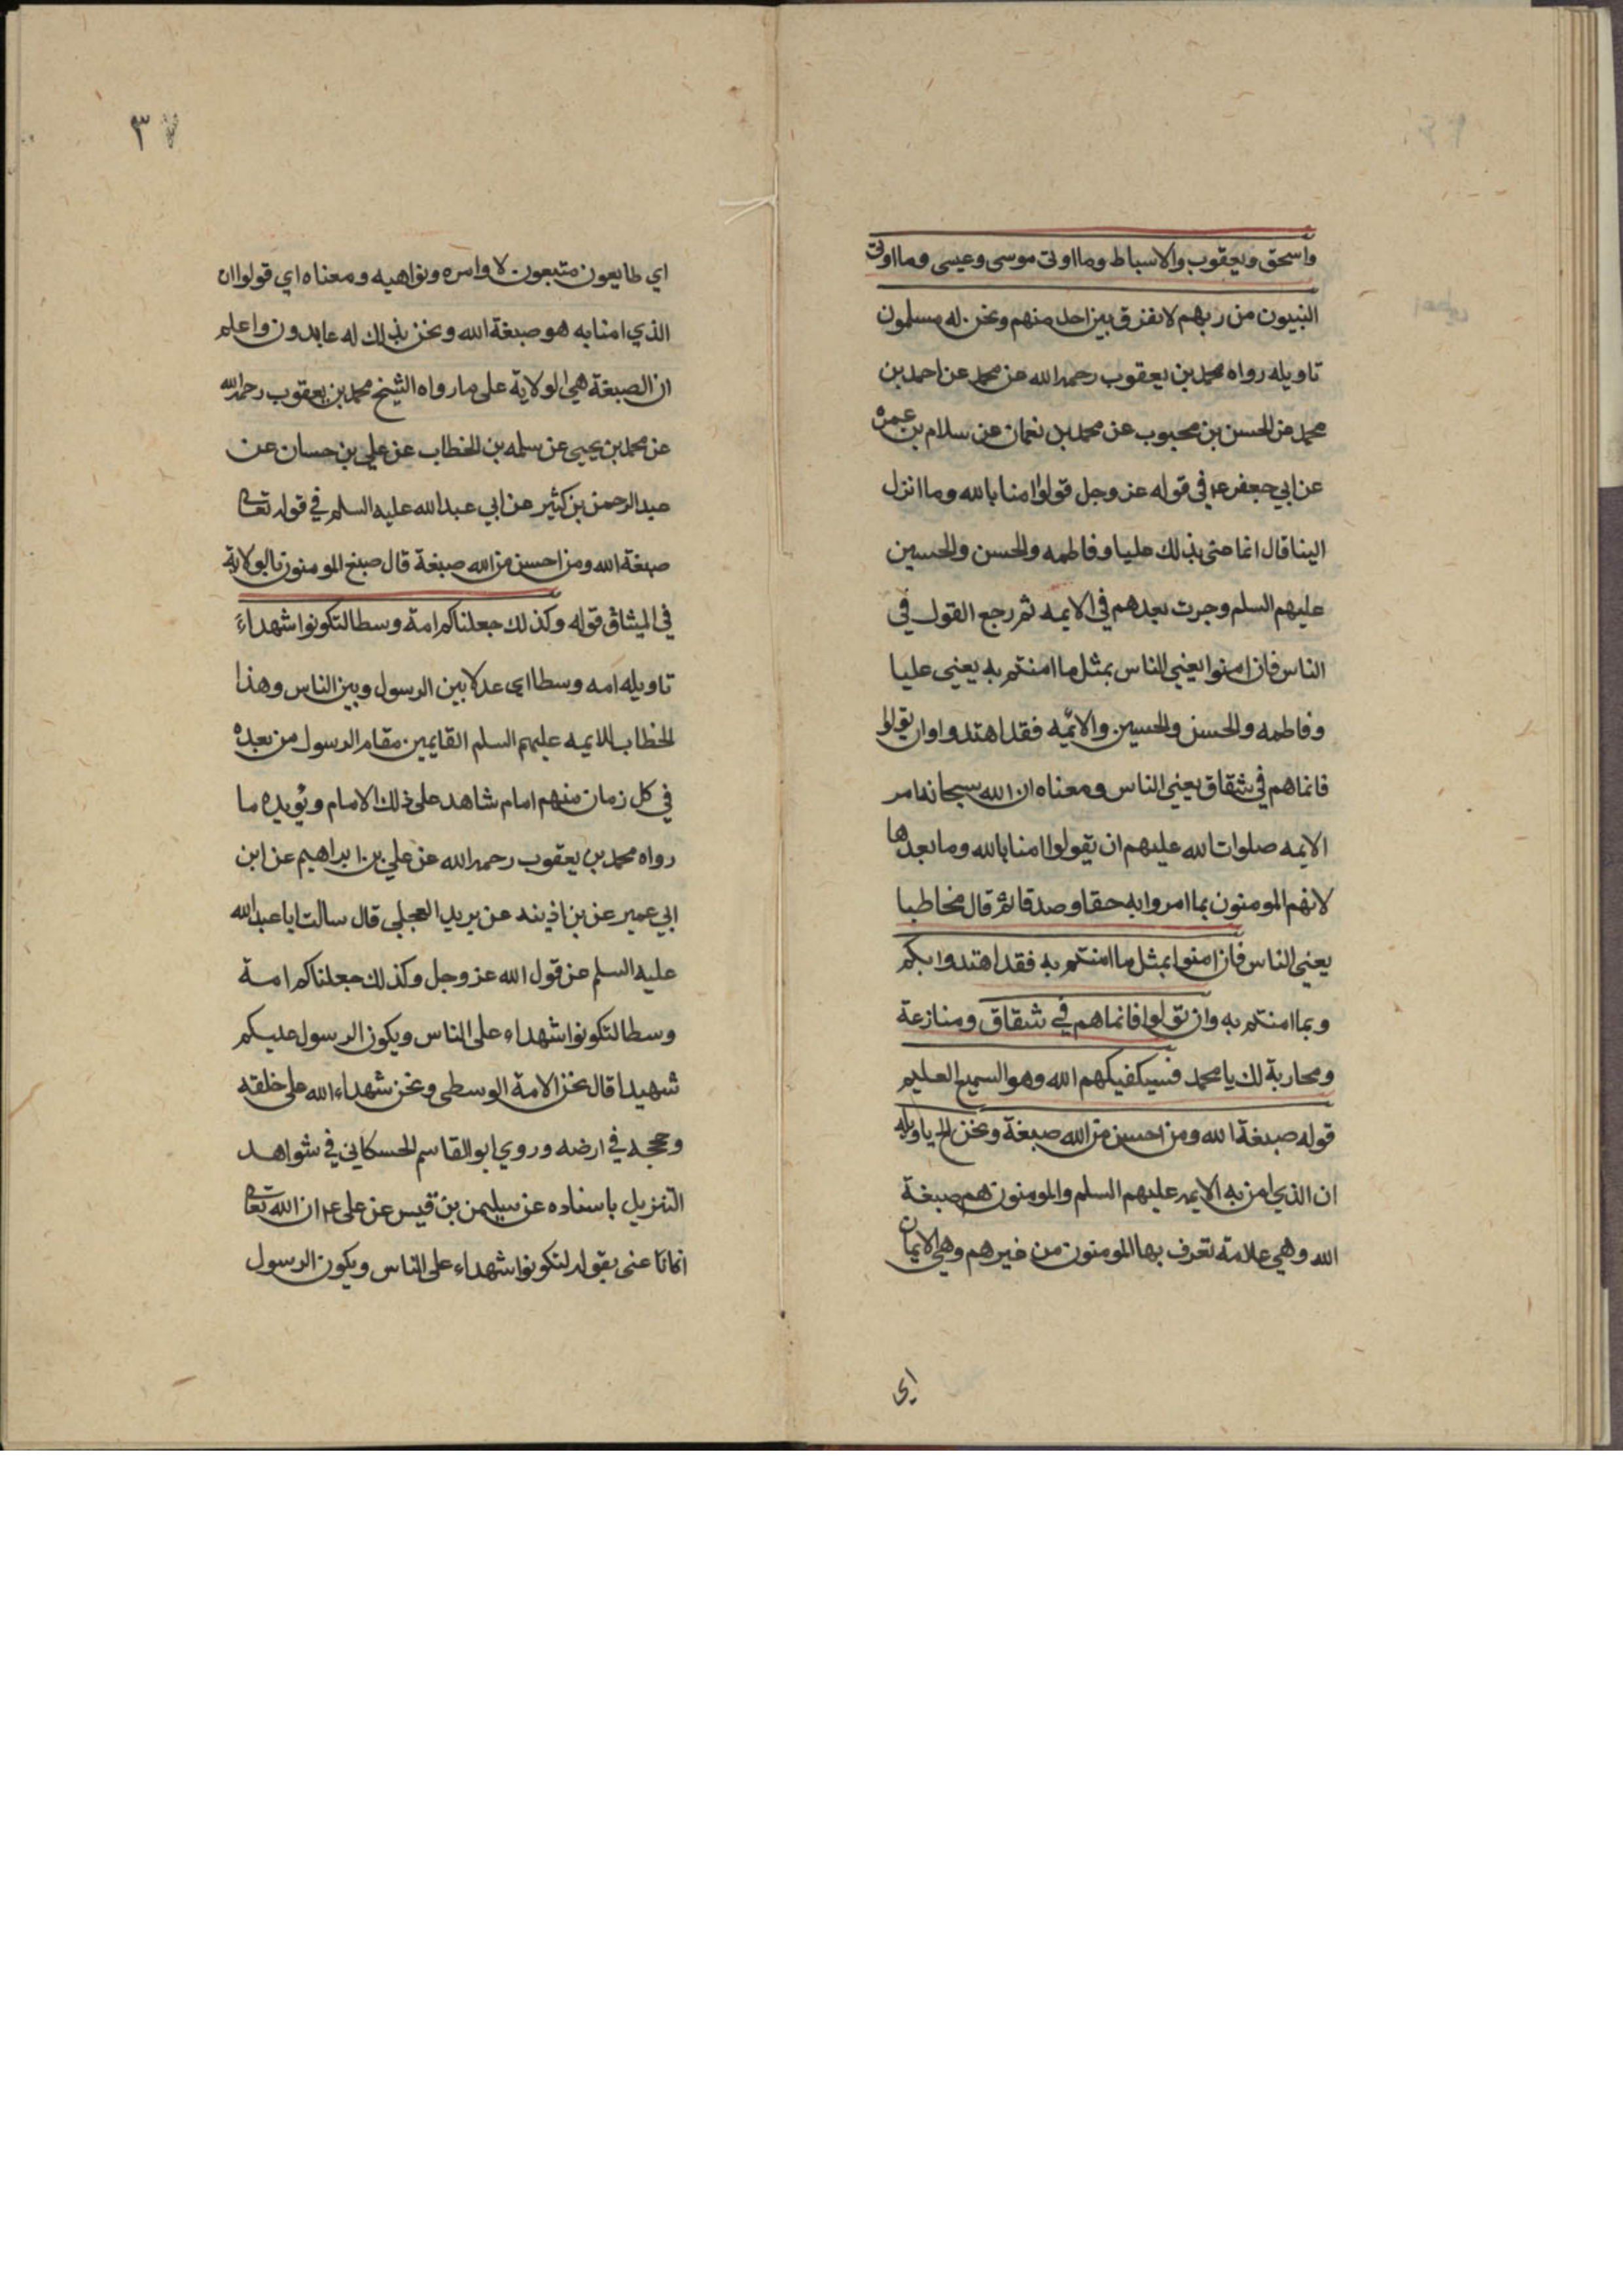 واسحق ويعقوب والاسباط وما اوتى موسى وعيسى وما اوتى
النبيون من ربهم لا نفرق بين احد منهم ونحن له مسلمون
تاويله رواه محمد بن يعقوب رحمه الله عن محمد عن احمد بن
محمد عن الحسن بن محبوب عن محمد بن نعمان عن سلام بن عمرة
عن ابي جعفر ع في قوله عز وجل قولوا امنا بالله وما انزل
الينا قال انما عنى بذلك عليا وفاطمه والحسن والحسين
عليهم السلم وجرت بعدهم في الايمه ثم رجع القول في
الناس فان امنوا يعني الناس بمثل ما امنتم به يعني عليا
وفاطمه والحسن والحسين والائمه فقد اهتدوا وان تولوا
فانما هم في شقاق يعني الناس ومعناه ان الله سبحانه امر
الايمه صلوات الله عليهم ان يقولوا امنا بالله وما بعدها
لانهم المومنون بما امروا به حقا وصدقا ثم قال مخاطبا
يعني الناس فان امنوا بمثل ما امنتم به فقد اهتدوا بكم
وبما امنتم به وان تولوا فانما هم في شقاق ومنازعة
ومحاربة لك يا محمد فسيكفيكهم الله وهو السميع العليم
قوله صبغة الله ومن احسن من الله صبغة ونحن الخ تاويله
ان الذي امن به الايمه عليهم السلم والمومنون هم صبغة
الله وهي علامة تعرف بها المومنون من غيرهم وهي الايمان
اي
٣
اي طايعون متبعون لاوامره ونواهيه ومعناه اي قولوا ان
الذي امنا به هو صبغة الله ونحن بذلك له عابدون واعلم
ان الصبغة هي الولاية على ما رواه الشيخ محمد بن يعقوب رحمه الله
عن محمد بن يحيى عن سلمه بن الخطاب عن علي بن حسان عن
عبد الرحمن بن كثير عن ابي عبد الله عليه السلم في قوله تعالى
صبغة الله ومن احسن من الله صبغة قال صبغ المومنون بالولاية
في الميثاق قوله وكذلك جعلناكم امة وسطا لتكونوا شهداء
تاويله امه وسطا اي عدلا بين الرسول وبين الناس وهذا
الخطاب للايمه عليهم السلم القايمين مقام الرسول من بعده
في كل زمان منهم امام شاهد على ذلك الامام ويؤيده ما
رواه محمد بن يعقوب رحمه الله عن علي بن ابراهيم عن ابن
ابي عمير عن بن اذينه عن بريد العجلي قال سالت ابا عبد الله
عليه السلم عن قول الله عز وجل وكذلك جعلناكم امة
وسطا لتكونوا شهداء على الناس ويكون الرسول عليكم
شهيدا قال نحن الامة الوسطى ونحن شهداء الله على خلقه
وحججه في ارضه وروي ابو القاسم الحسكاني في شواهد
التنزيل باسناده عن سليمن بن قيس عن علي ع ان الله تعالى
ايانا عنى بقوله لتكونوا شهداء على الناس ويكون الرسول